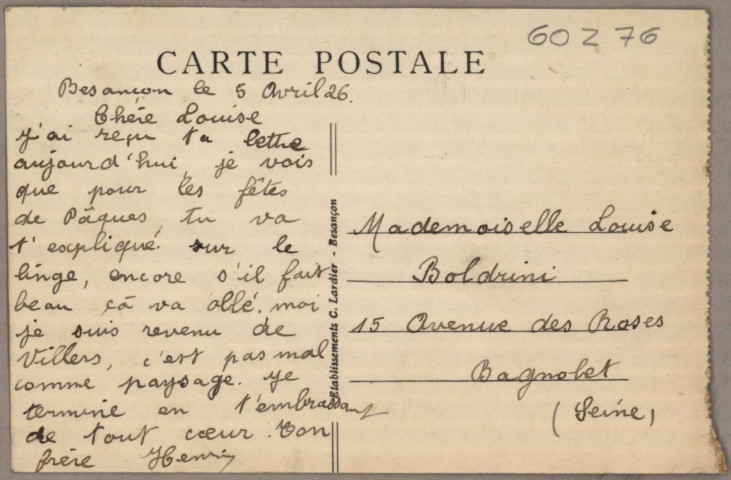 60 Z 76
CARTE POSTALE
Besançon le 5 Avril 26.
Chére Louise
J'ai reçu ta lettre
aujourd'hui, je vois
que pour les fêtes
de Pâques, tu va
t'expliqué sur le
linge, encore s'il fait
beau çà va allé. moi
je suis revenu de
Villers, c'est pas mal
comme paysage. je
termine en t'embrassant
de tout cœur. Ton
frère Henri
Etablissements C. Lardier - Besançon
Mademoiselle Louise
Boldrini
15 Avenue des Roses
Bagnolet
(Seine)